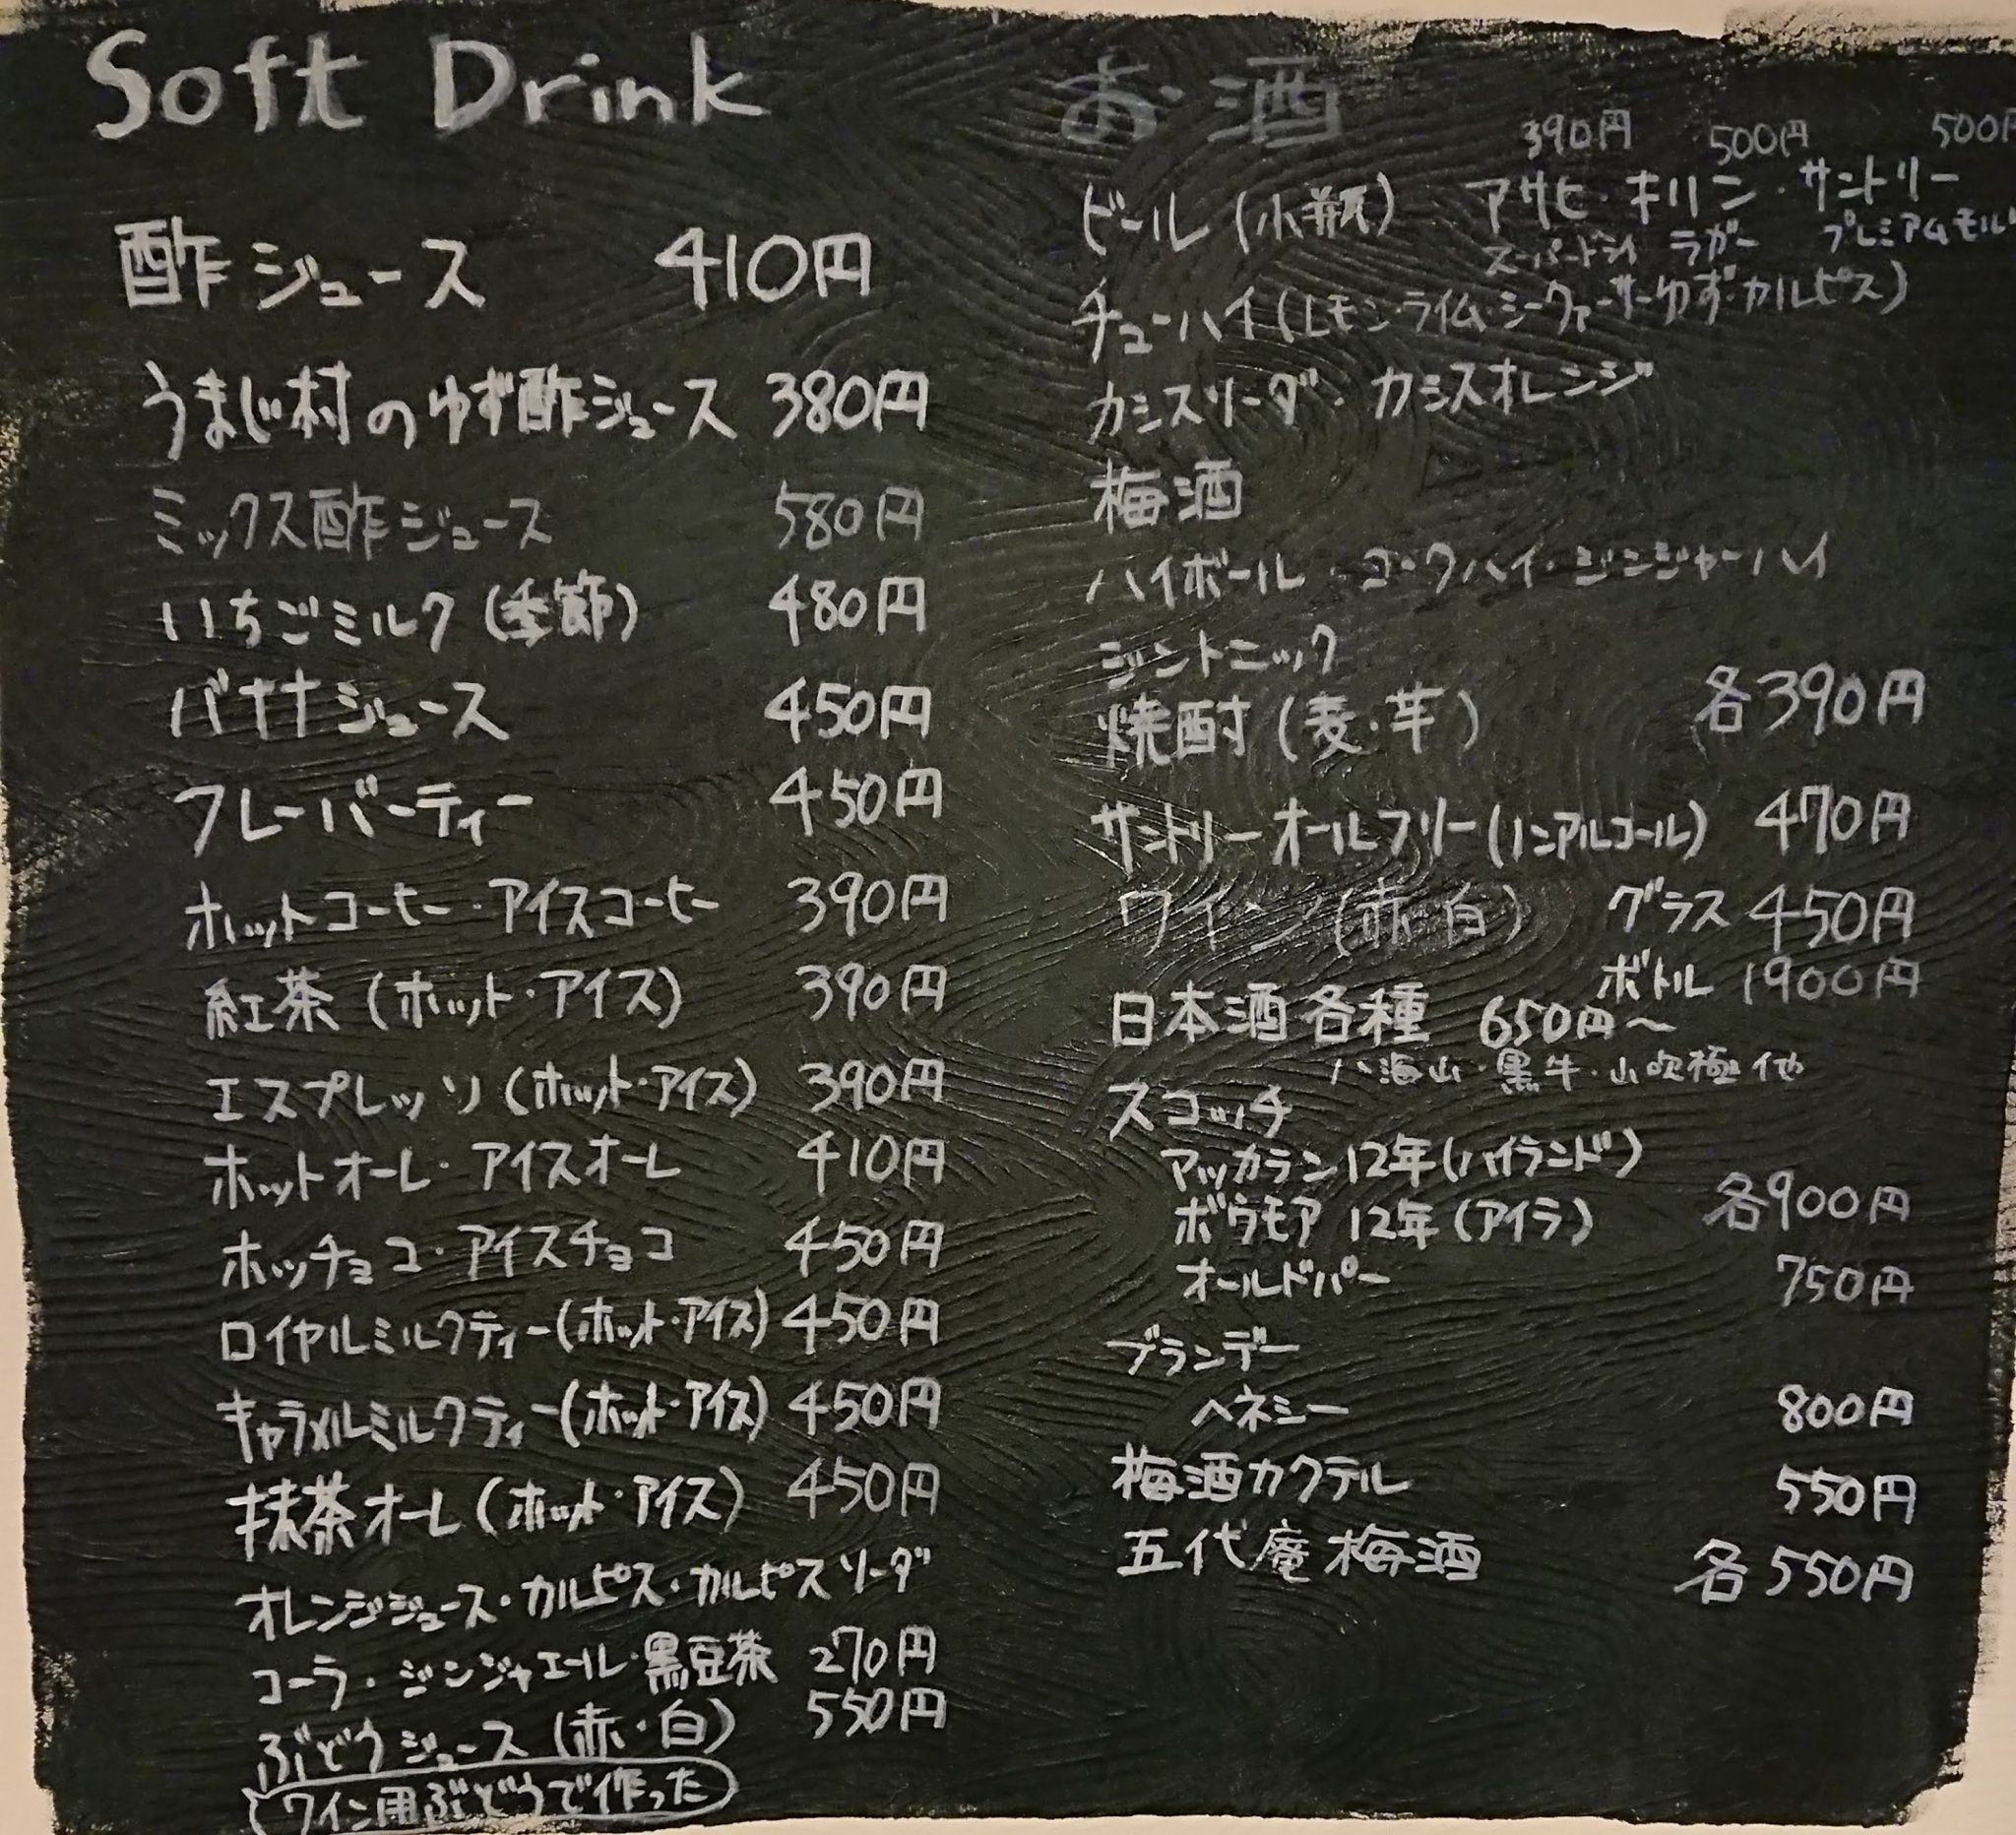 Soft Drink
酢ジュース 410円
うまじ村のゆず酢ジュース 380円
ミックス酢ジュース 580円
いちごミルク(季節) 480円
バナナジュース 450円
フレーバーティー 450円
ホットコーヒー・アイスコーヒー 390円
紅茶(ホット・アイス) 390円
エスプレッソ(ホット・アイス) 390円
ホットオーレ・アイスオーレ 410円
ホッチョコ・アイスチョコ 450円
ロイヤルミルクティー(ホット・アイス) 450円
キャラメルミルクティー(ホット・アイス) 450円
抹茶オーレ(ホット・アイス) 450円
オレンジジュース・カルピス・カルピスソーダ
コーラ・ジンジャエール・黒豆茶 270円
ぶどうジュース(赤・白) 550円
(ワイン用ぶどうで作った)
お酒
390円 500円 500円
ビール(小瓶) アサヒ・キリン・サントリー
スーパードライ ラガー プレミアムモル
チューハイ(レモン・ライム・シークァーサー・ゆず・カルピス)
カシスソーダ・カシスオレンジ
梅酒
ハイボール・コークハイ・ジンジャーハイ
ジントニック
焼酎(麦・芋) 各390円
サントリーオールフリー(ノンアルコール) 470円
ワイン(赤・白) グラス 450円
ボトル 1900円
日本酒各種 650円~
八海山・黒牛・山吹極 他
スコッチ
マッカラン12年(ハイランド)
ボウモア 12年(アイラ) 各900円
オールドパー 750円
ブランデー
ヘネシー 800円
梅酒カクテル 550円
五代庵梅酒 各550円